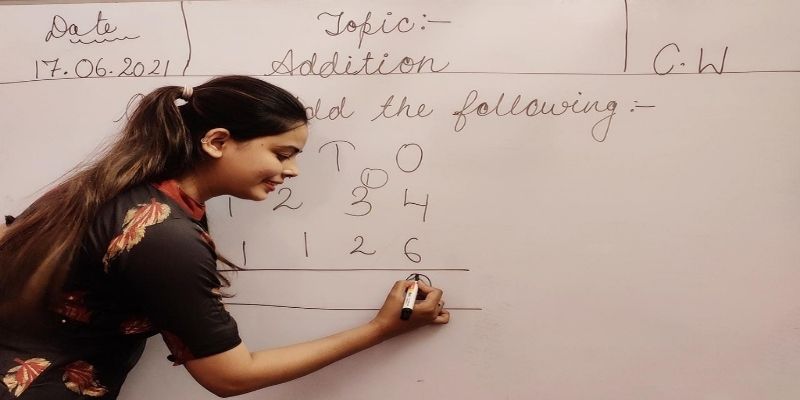 Date Topic:-
17.06.2021 Addition C.W
Add the following:-
T O
1
1 2 3 4
1 1 2 6
0